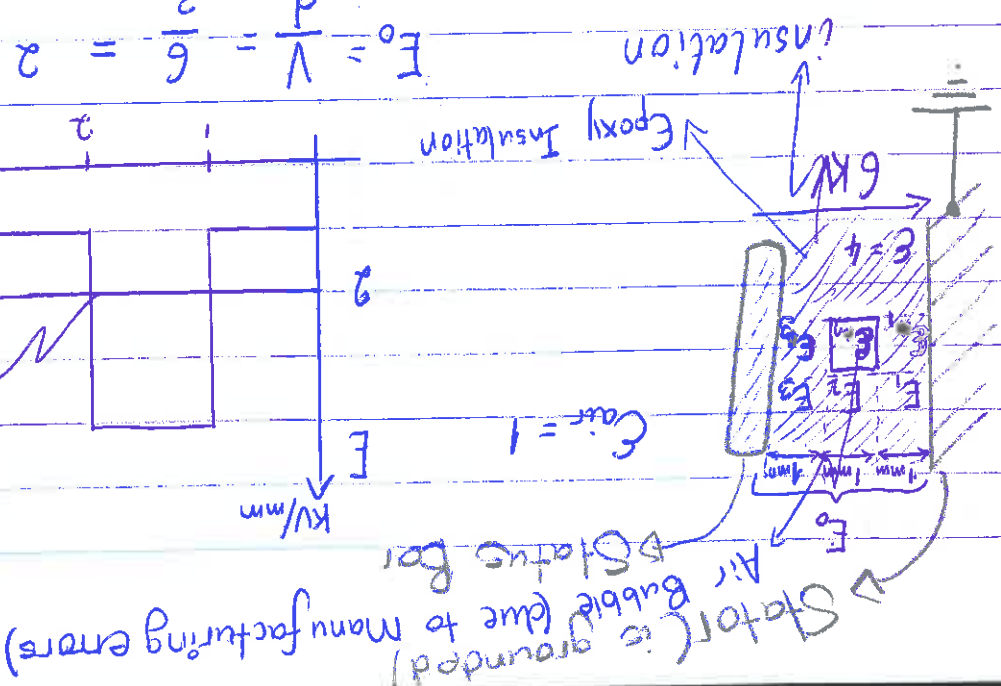 Stator (is grounded)
Air Bubble (due to Manufacturing errors)
Status Bar
E₀
1mm 1mm 1mm
kV/mm
E
E₁ E₂ E₃
Ɛair = 1
Ɛ₁ Ɛ₂ Ɛ₃
2
Ɛ = 4
6 kV
1 2
Epoxy Insulation
insulation
E₀ = V/d = 6/3 = 2